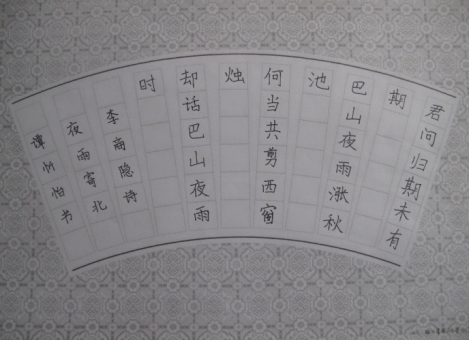 君问归期未有
期
巴山夜雨涨秋
池
何当共剪西窗
烛
却话巴山夜雨
时
李商隐诗
夜雨寄北
谭怡书